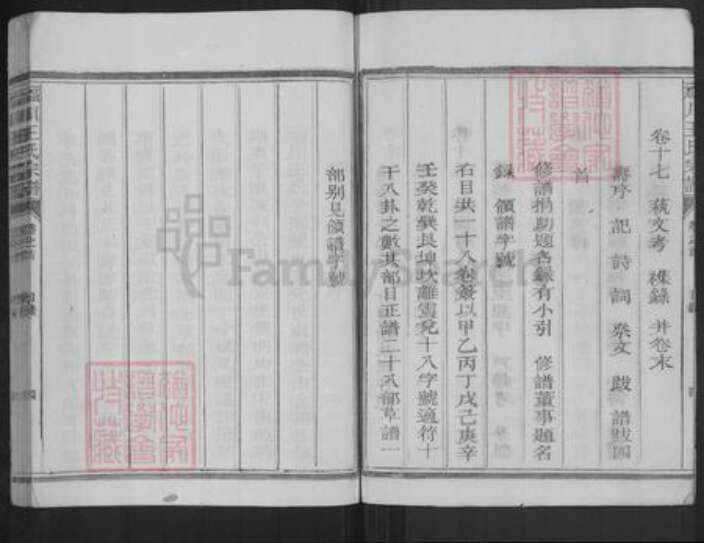 卷十七 藝文考 襍錄 并卷末
壽序 記 詩 詞 祭文 跋 譜跋四
首
修譜捐助題名錄有小引 修譜董事題名
錄 領譜字號
右目共一十八卷敬以甲乙丙丁戊己庚辛
壬癸乾巽艮坤坎離震兌十八字號適符十
干八卦之數其部目正譜二十八部草譜一
部別見領譜字號
王氏宗譜
FamilySearch